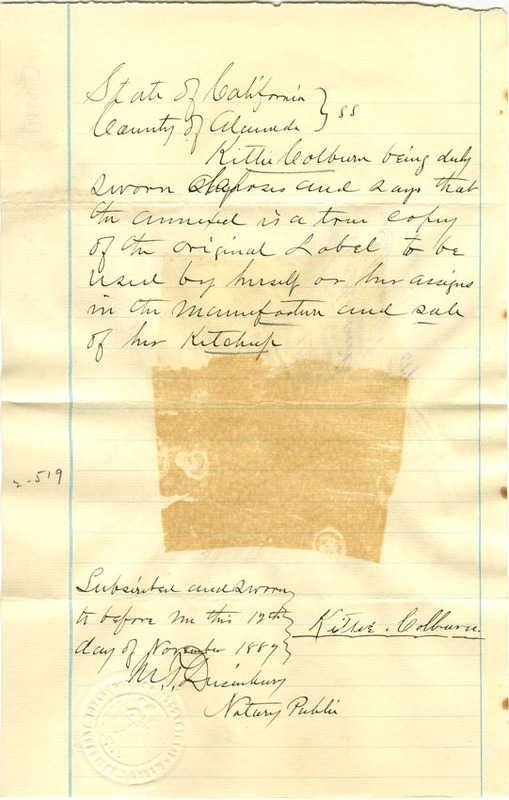 State of California } ss
County of Alameda
Kittie Colburn being duly
sworn deposes and says that
the annexed is a true copy
of the original Label to be
used by herself or her assigns
in the manufacture and sale
of her Ketchup
2-519
Subscribed and sworn
to before me this 12th
day of November 1889
Kittie. Colburn.
Notary Public